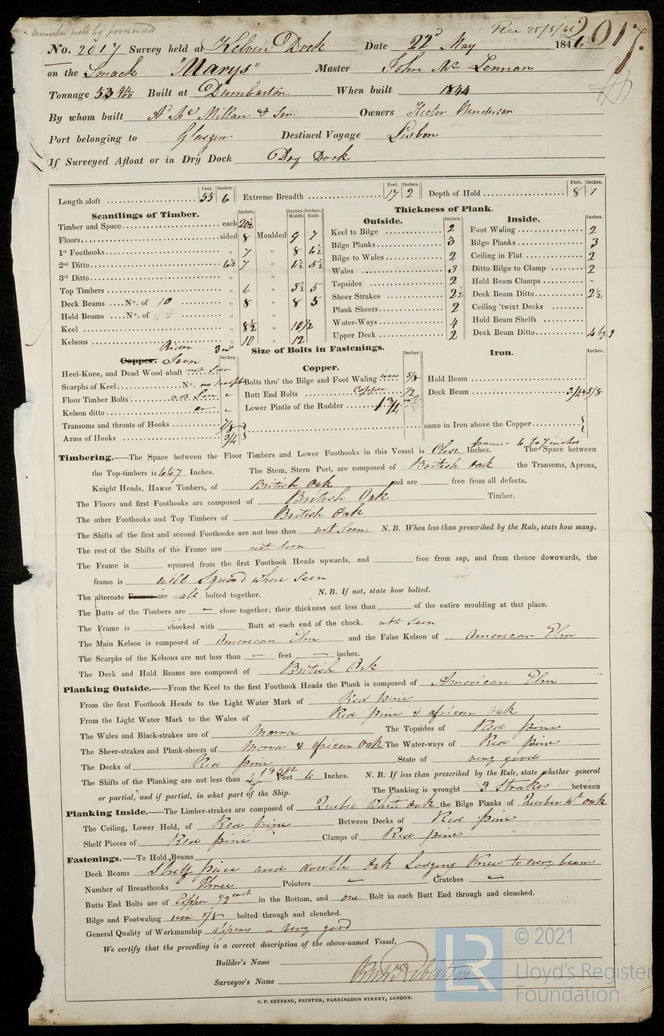 number will be forwarded
Rec 25/5/46
No. 2017 Survey held at Kelvin Dock Date 22d May 1846 2017.
on the Smack "Marys" Master John Mc Lennan
Tonnage 53 Built at Dumbarton When built 1844
By whom built Ad McMillan & Son Owners Hector Henderson
Port belonging to Glasgow Destined Voyage Lisbon
If Surveyed Afloat or in Dry Dock Dry Dock
Length aloft 55 6 Extreme Breadth 17 2 Depth of Hold 8 1
Scantlings of Timber.
Timber and Space each
Floors sided 8 Moulded 9 7
1st Foothooks 7 " 8 6½
2nd Ditto 6½ 7 " 6½ 5½
3rd Ditto "
Top Timbers 6 " 5½ 5
Deck Beams No. of 10 8 " 8 5
Hold Beams No. of "
Keel 8½ " 10/2
Kelsons 10 " 12
Rider 3
Thickness of Plank.
Outside.
Keel to Bilge 2
Bilge Planks 3
Bilge to Wales 2
Wales 3
Topsides 2
Sheer Strakes 2½
Plank Sheers 2
Water-Ways 4
Upper Deck 2
Inside.
Foot Waling 2
Bilge Planks 3
Ceiling in Flat 2
Ditto Bilge to Clamp 2
Hold Beam Clamps
Deck Beam Ditto 2½
Ceiling 'twixt Decks
Hold Beam Shelfs
Deck Beam Ditto
Size of Bolts in Fastenings.
Copper. Iron
Heel-Knee, and Dead Wood abaft not seen
Scarphs of Keel No. no scarphs
Floor Timber Bolts
Kelson ditto
Transoms and throats of Hooks 7/8
Arms of Hooks 3/4
Copper.
Bolts thro' the Bilge and Foot Waling iron 5/8
Butt End Bolts Copper 1/2
Lower Pintle of the Rudder 1 3/4
Iron.
Hold Beam
Deck Beam 3/4 & 5/8
same in Iron above the Copper
Timbering.—The Space between the Floor Timbers and Lower Foothooks in this Vessel is Close Inches. The Space between
frames 6 to 7 inches
the Top-timbers is 6 & 7 Inches. The Stem, Stern Post, are composed of British Oak the Transoms, Aprons,
Knight Heads, Hawse Timbers, of British Oak and are free from all defects.
The Floors and first Foothooks are composed of British Oak Timber.
The other Foothooks and Top Timbers of British Oak
The Shifts of the first and second Foothooks are not less than not seen N. B. When less than prescribed by the Rule, state how many.
The rest of the Shifts of the Frame are not seen
The Frame is squared from the first Foothook Heads upwards, and free from sap, and from thence downwards, the
frame is well Squared where seen
The alternate Frame are all bolted together. N. B. If not, state how bolted.
The Butts of the Timbers are — close together; their thickness not less than of the entire moulding at that place.
The Frame is chocked with Butt at each end of the chock. not seen
The Main Kelson is composed of American Elm and the False Kelson of American Elm
The Scarphs of the Kelsons are not less than — feet — inches.
The Deck and Hold Beams are composed of British Oak
Planking Outside.—From the Keel to the first Foothook Heads the Plank is composed of American Elm
From the first Foothook Heads to the Light Water Mark of Red pine
From the Light Water Mark to the Wales of Red pine & african oak
The Wales and Black-strakes are of Morra The Topsides of Red pine
The Sheer-strakes and Plank-sheers of Morra & african Oak The Water-ways of Red pine
The Decks of Red pine State of very good
The Shifts of the Planking are not less than Feet 6 Inches. N. B. If less than prescribed by the Rule, state whether general
or partial, and if partial, in what part of the Ship. The Planking is wrought 3 Strakes between
Planking Inside.—The Limber-strakes are composed of Quebec White Oak the Bilge Planks of Quebec Wt oak
The Ceiling, Lower Hold, of Red pine Between Decks of Red pine
Shelf Pieces of Red pine Clamps of Red pine
Fastenings.—To Hold Beams
Deck Beams Shelf piece and double Oak Lodging Knees to every beam
Number of Breasthooks Three Pointers — Crutches —
Butts End Bolts are of Copper 1/2 inch in the Bottom, and one Bolt in each Butt End through and clenched.
Bilge and Footwaling iron 5/8 bolted through and clenched.
General Quality of Workmanship appears — very good
We certify that the preceding is a correct description of the above-named Vessel,
Builder's Name
Surveyor's Name
C. F. SEYFANG, PRINTER, FARRINGDON STREET, LONDON.
LR
© 2021
Lloyd's Register
Foundation